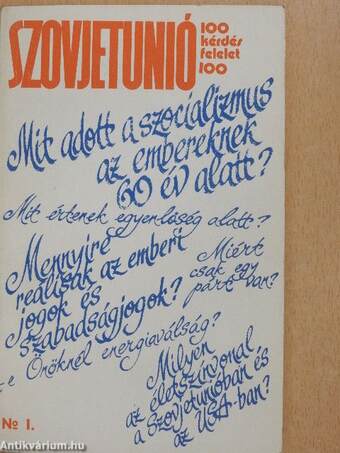 SZOVJETUNIÓ
100
kérdés
felelet
100
Mit adott a szocializmus
az embereknek
60 év alatt?
Mit értenek egyenlőség alatt?
Mennyire
reálisak az emberi
jogok és
szabadságjogok?
Miért
csak egy
párt van?
-e Önöknél energiaválság?
Milyen
az életszínvonal
a Szovjetunióban és
az USA-ban?
№ 1.
Antikvárium.hu